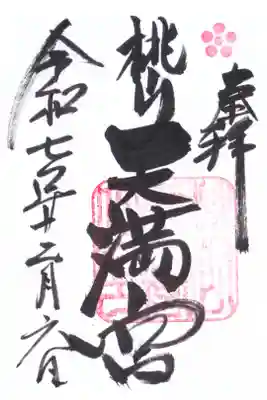 奉拝
桃山天満宮
令和七年二月六日